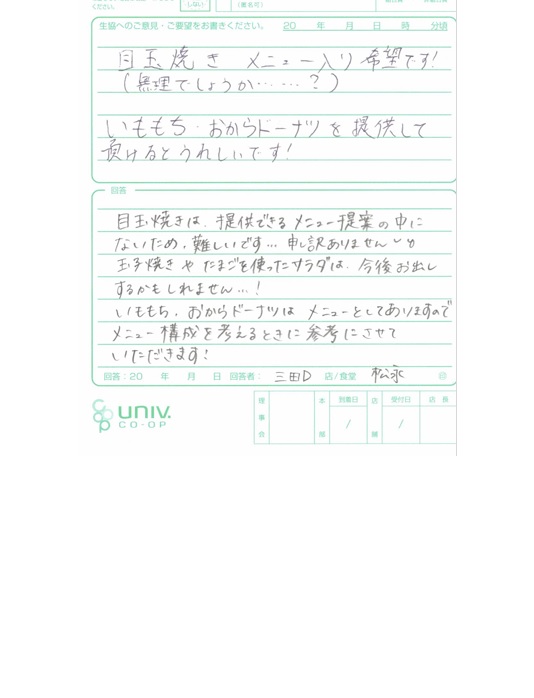 ください。
しない
(署名可)
生協へのご意見・ご要望をお書きください。 20 年 月 日 時 分頃
目玉焼き メニュー入り希望です!
(無理でしょうか……?)
いももち・おからドーナツを提供して
頂けるとうれしいです!
回答
目玉焼きは、提供できるメニュー提案の中に
ないため、難しいです… 申し訳ありません
玉子焼きやたまごを使ったサラダは、今後お出し
するかもしれません…!
いももち、おからドーナツは メニューとしてありますので
メニュー構成を考えるときに参考にさせて
いただきます!
回答:20 年 月 日 回答者: 三田D 店/食堂 松永 印
UNIV.
CO-OP
理事会 本部 到着日 店舗 受付日 店長
/ /